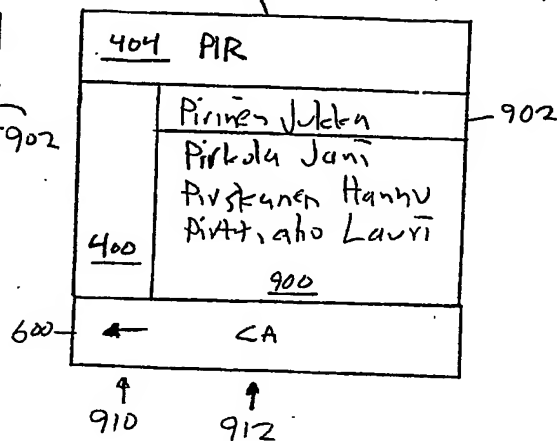 404 PIR
Pirinen Jukka 902
902
Pirkola Jani
Pirskanen Hannu
Pirttiaho Lauri
400
900
600 ← <A
910 912